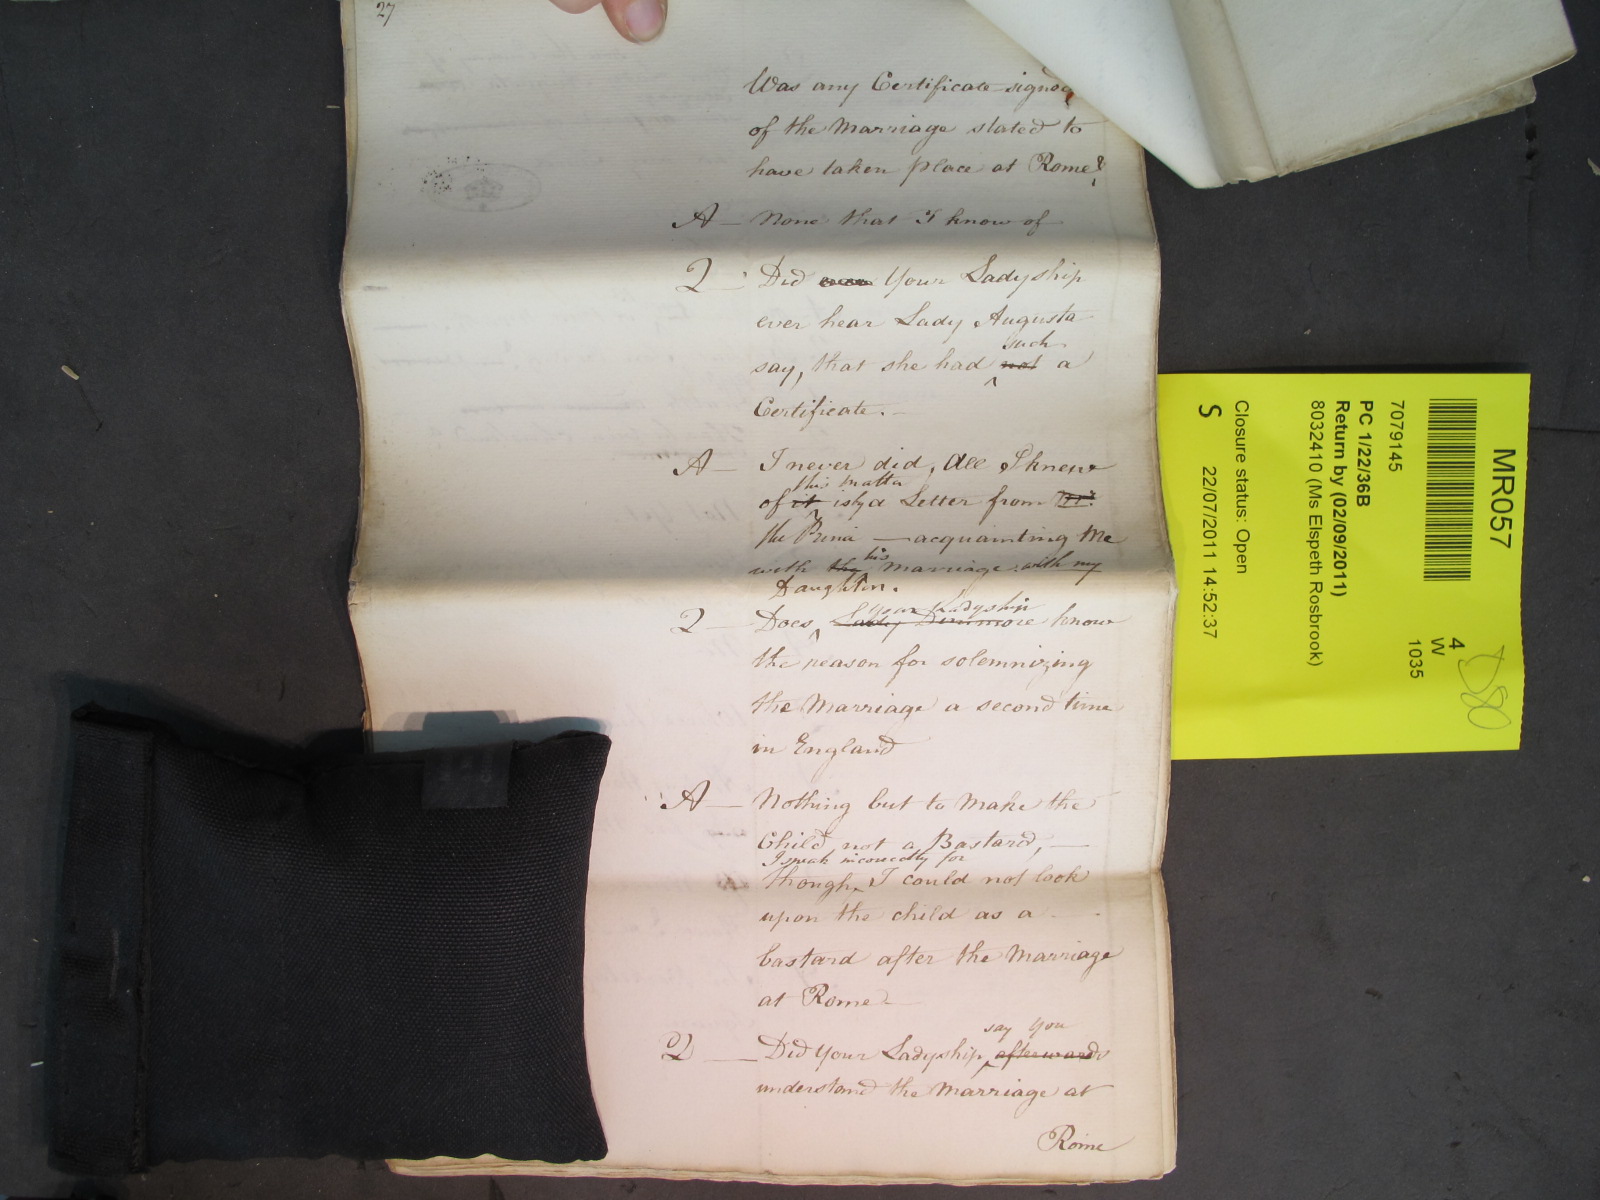 27
Was any Certificate signed
of the Marriage stated to
have taken place at Rome?
A — None that I know of
Q — Did ever Your Ladyship
ever hear Lady Augusta
such
say, that she had not a
Certificate. —
A — I never did, All I knew
this matter
of it is by a Letter from
the Prince — acquainting Me
his
with the Marriage with my
Daughter.
your Ladyship
Q — Does Lady Dunmore know
the reason for solemnizing
the Marriage a second time
in England
A — Nothing but to Make the
Child not a Bastard, —
I speak incorrectly for
though I could not look
upon the child as a
bastard after the Marriage
at Rome —
say You
Q — Did Your Ladyship, afterwards
understand the Marriage at
Rome
MR057
7079145
PC 1/22/36B
Return by (02/09/2011)
8032410 (Ms Elspeth Rosbrook)
Closure status: Open
S 22/07/2011 14:52:37
4
W
1035